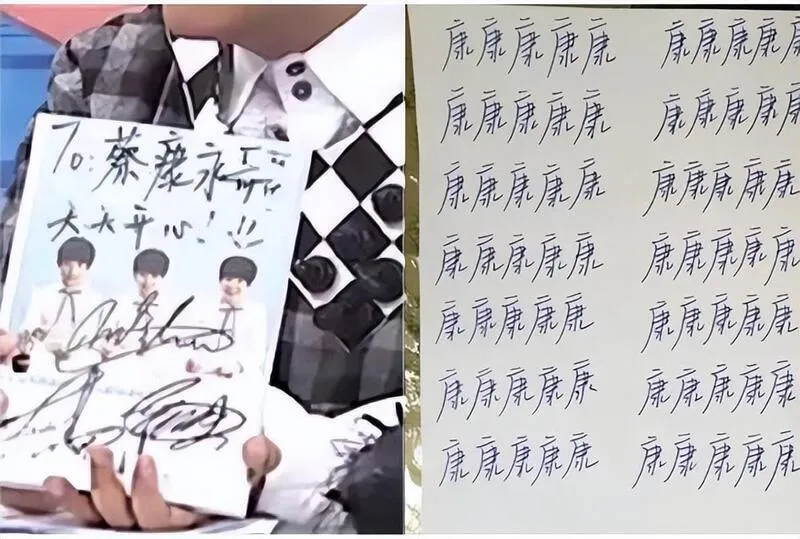 To:蔡康永
天天开心!!!
康康康康康 康康康康康
康康康康康 康康康康康
康康康康康 康康康康康
康康康康康 康康康康康
康康康康康 康康康康康
康康康康康 康康康康康
康康康康康 康康康康康